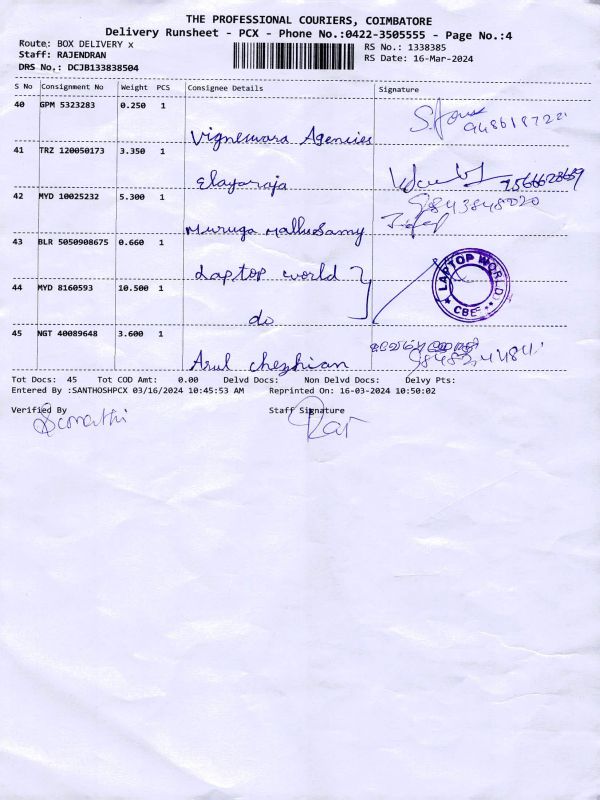 THE PROFESSIONAL COURIERS, COIMBATORE
Delivery Runsheet - PCX - Phone No.:0422-3505555 - Page No.:4
Route: BOX DELIVERY x
RS No.: 1338385
Staff: RAJENDRAN
RS Date: 16-Mar-2024
DRS No.: DCJB133838504
S No Consignment No Weight PCS Consignee Details Signature
40 GPM 5323283 0.250 1
Vigneswara Agencies
41 TRZ 120050173 3.350 1
Elayaraja
42 MYD 10025232 5.300 1
9843848020
Muruga Mallusamy
43 BLR 5050908675 0.660 1
Laptop world
LAPTOP WORLD
★ CBE ★
44 MYD 8160593 10.500 1
do
45 NGT 40089648 3.600 1
Arul chezhian
Tot Docs: 45 Tot COD Amt: 0.00 Delvd Docs: Non Delvd Docs: Delvy Pts:
Entered By :SANTHOSHPCX 03/16/2024 10:45:53 AM Reprinted On: 16-03-2024 10:50:02
Verified By Staff Signature